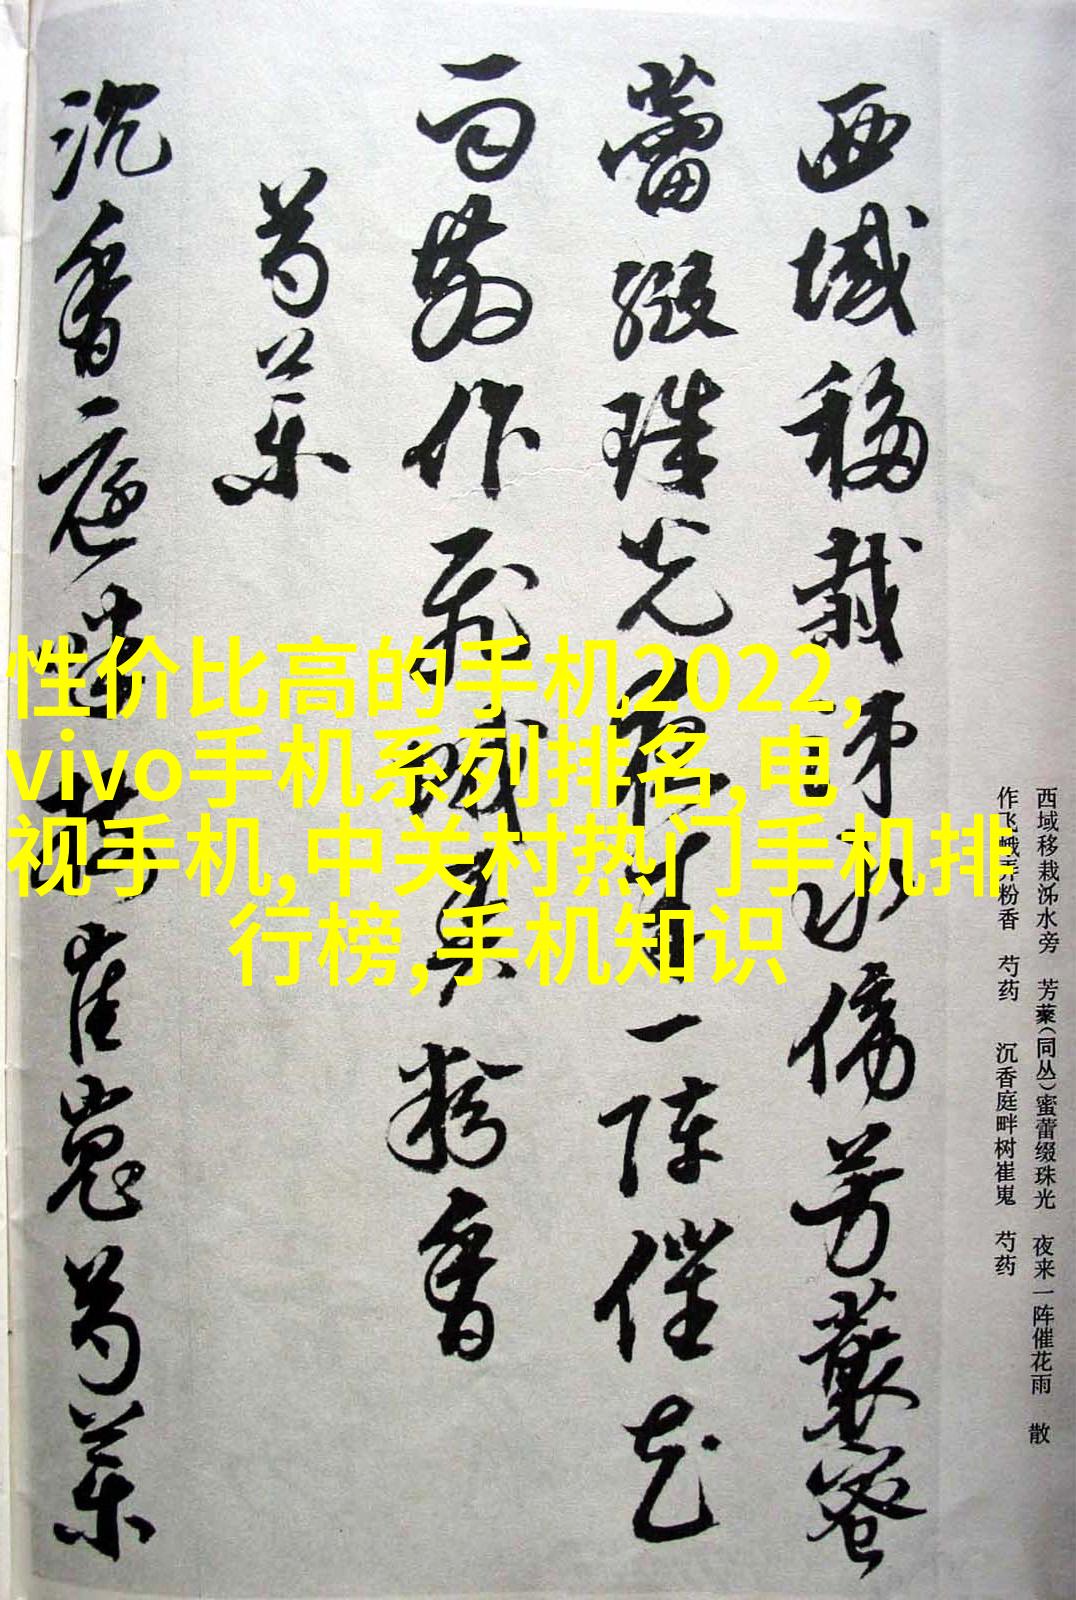 西域移栽泲水傍芳藂蜜
蕾缀珠光夜来一阵催花
雨散作飞蛾弄粉香
芍药
沉香庭畔树崔嵬芍药
西域移栽泲水旁　芳藂(同丛)蜜蕾缀珠光　夜来一阵催花雨　散
作飞蛾弄粉香　芍药　沉香庭畔树崔嵬　芍药
性价比高的手机2022,
vivo手机系列排名,电
视手机,中关村热门手机排
行榜,手机知识